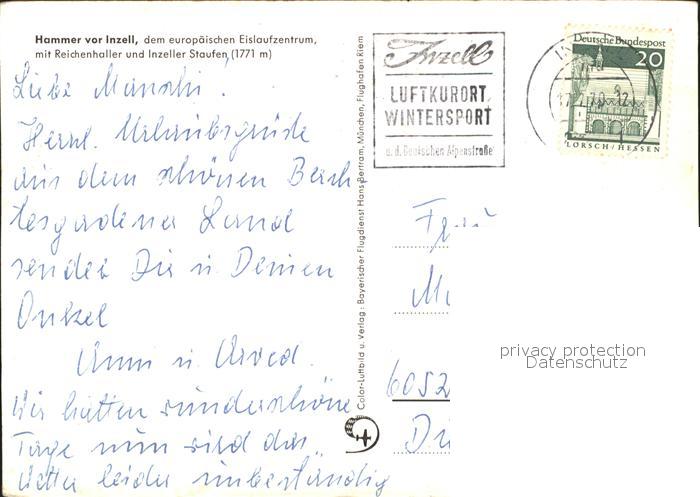 Hammer vor Inzell, dem europäischen Eislaufzentrum,
mit Reichenhaller und Inzeller Staufen (1771 m)
Liebe Manschi.
Herzl. Urlaubsgrüße
aus dem schönen Berch-
tesgadener Land
sendet Dir u. Deinen
Onkel
Anni u. Arved.
Wir hatten wunderschöne
Tage nun wird das
Wetter leider unbeständig
Color-Luftbild u. Verlag: Bayerischer Flugdienst Hans Bertram, München, Flughafen Riem
Inzell
LUFTKURORT
WINTERSPORT
a. d. Deutschen Alpenstraße
Deutsche Bundespost
20
LORSCH/HESSEN
Frau
6052
privacy protection
Datenschutz